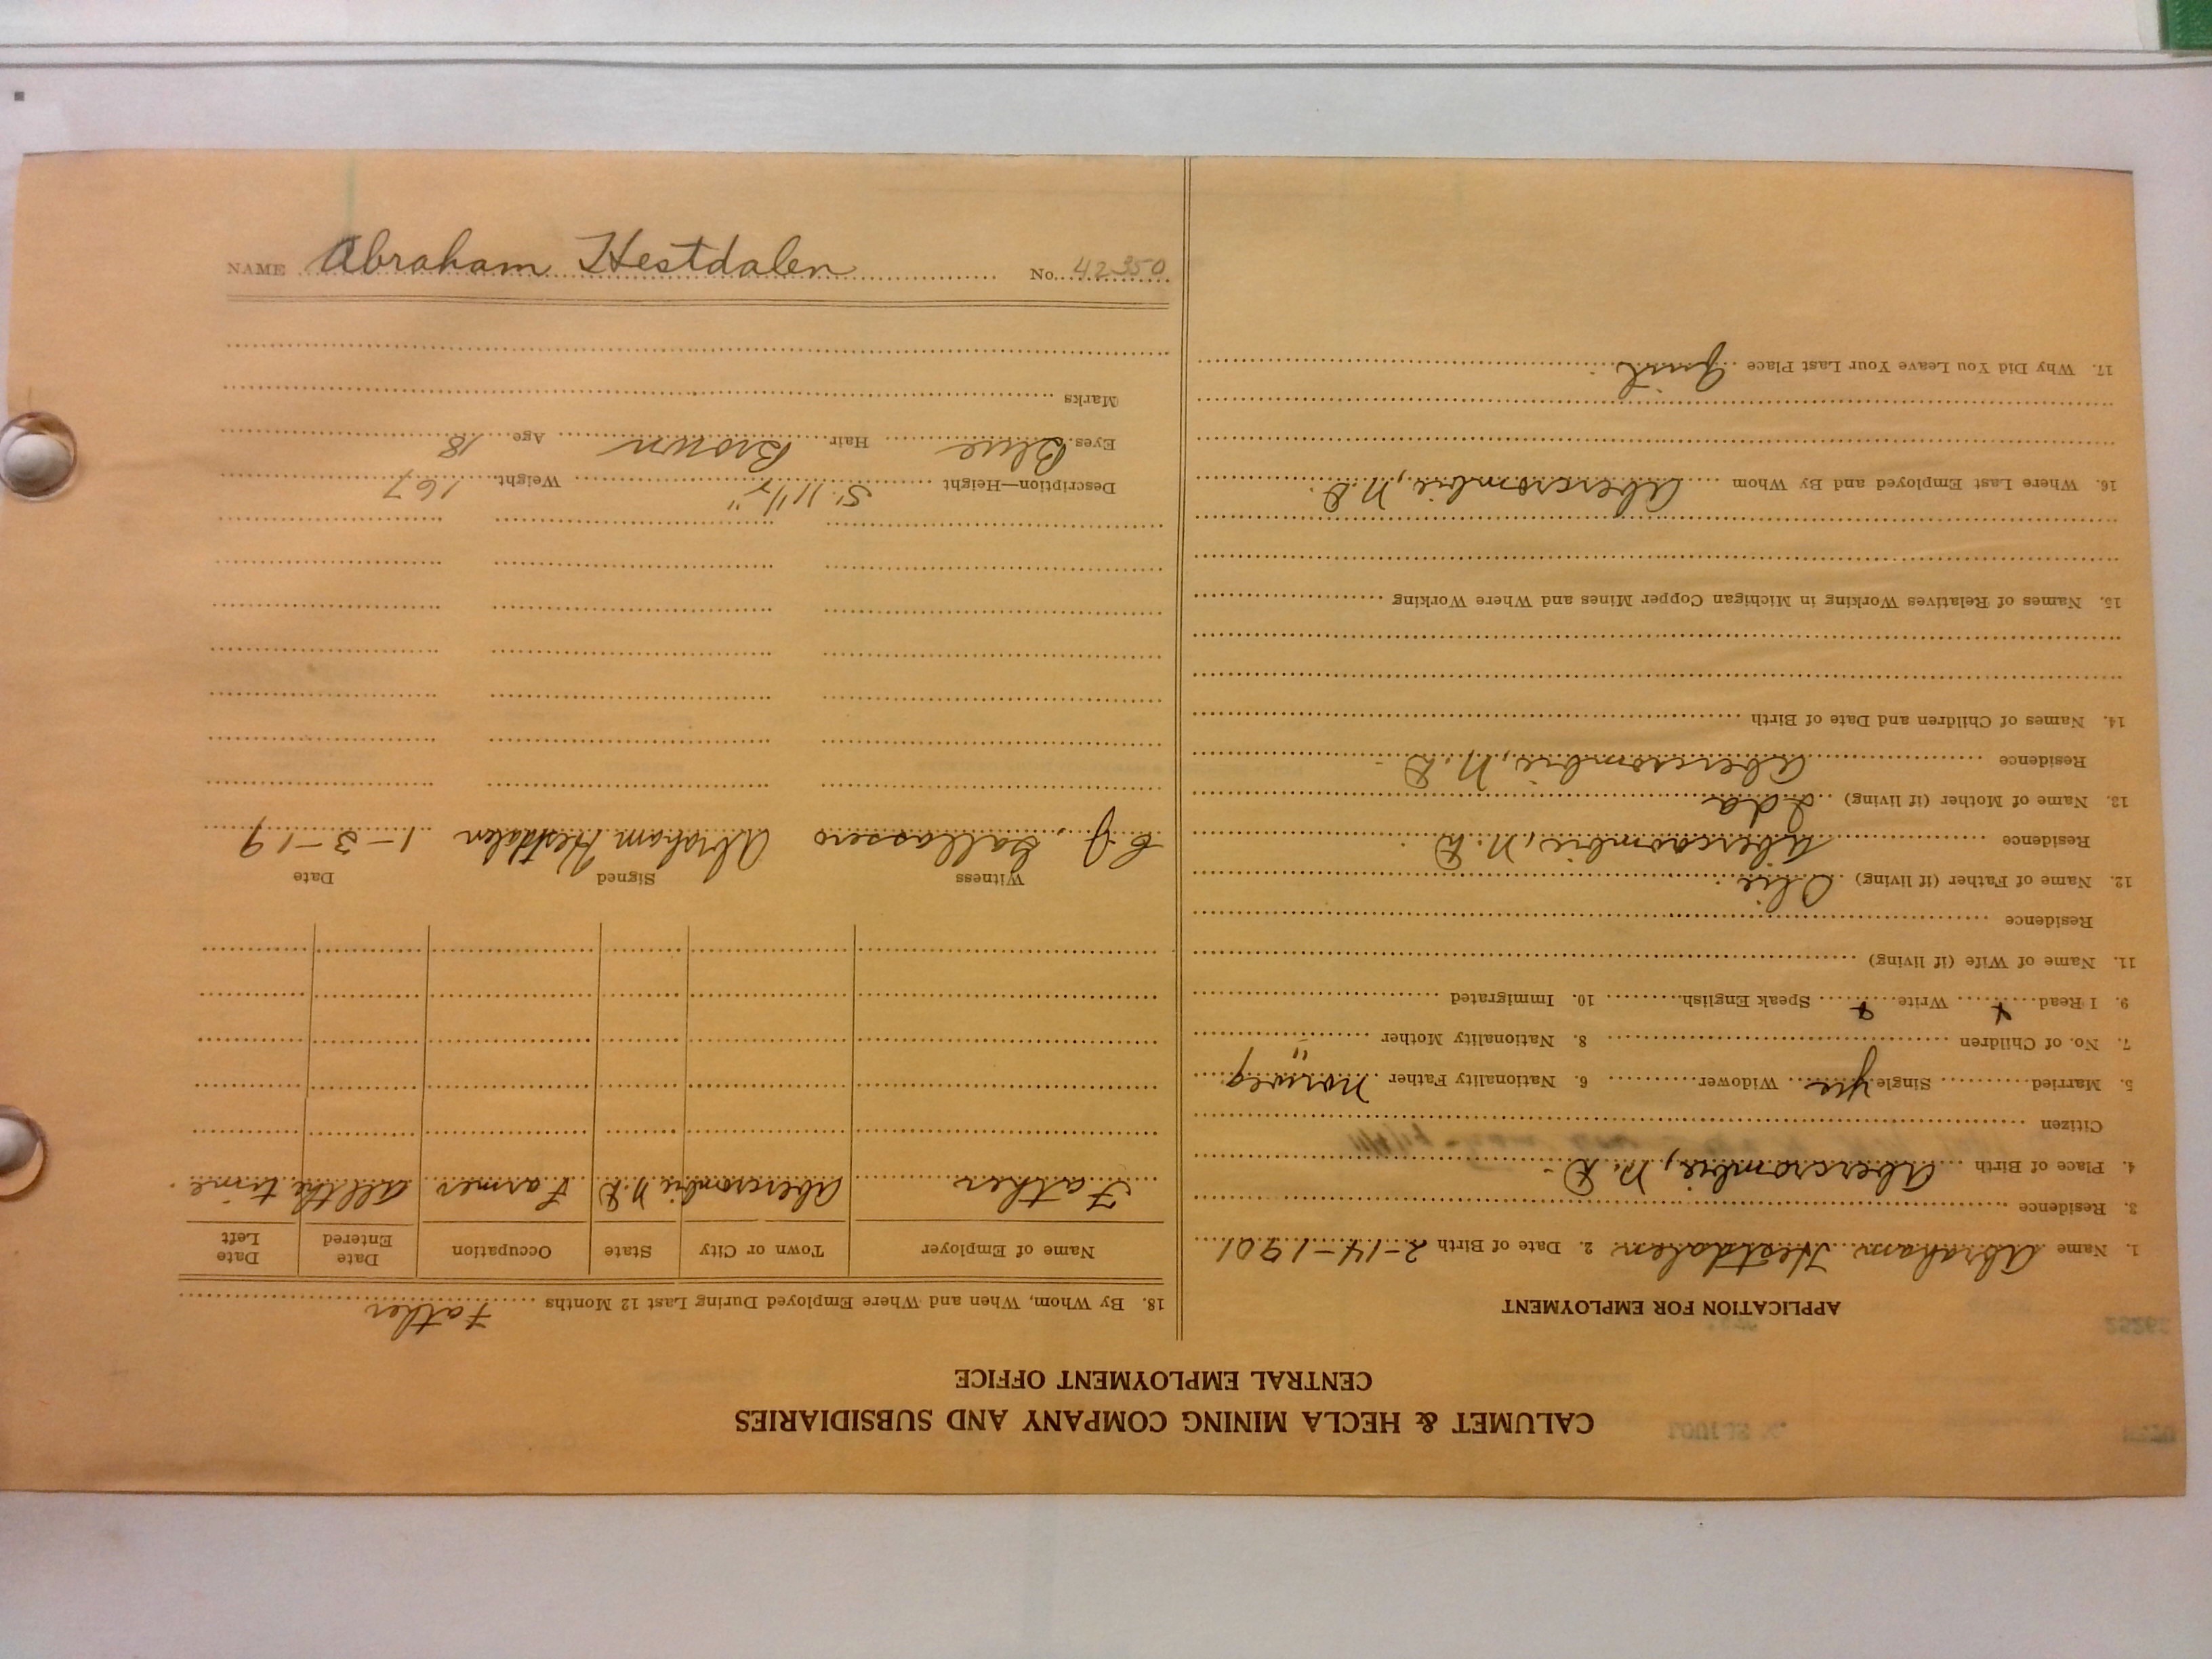 CALUMET & HECLA MINING COMPANY AND SUBSIDIARIES
CENTRAL EMPLOYMENT OFFICE
APPLICATION FOR EMPLOYMENT
1. Name Abraham Hestdalen 2. Date of Birth 2-14-1901
3. Residence
4. Place of Birth Abercrombie, N.D.
Citizen
5. Married Single yes Widower 6. Nationality Father Norweg
7. No. of Children 8. Nationality Mother "
9. I Read Write Speak English 10. Immigrated
11. Name of Wife (if living)
Residence
12. Name of Father (if living) Olie
Residence Abercrombie, N.D.
13. Name of Mother (if living) Ida
Residence Abercrombie, N.D.
14. Names of Children and Date of Birth
15. Names of Relatives Working in Michigan Copper Mines and Where Working
16. Where Last Employed and By Whom Abercrombie, N.D.
17. Why Did You Leave Your Last Place Quit
18. By Whom, When and Where Employed During Last 12 Months Father
Name of Employer Town or City State Occupation Date Entered Date Left
Father Abercrombie N.D. Farmer All the time.
Witness Signed Date
Abraham Hestdalen 1-3-19
Description—Height 5' 11 1/2" Weight 167
Eyes Blue Hair Brown Age 18
Marks
NAME Abraham Hestdalen No. 42350